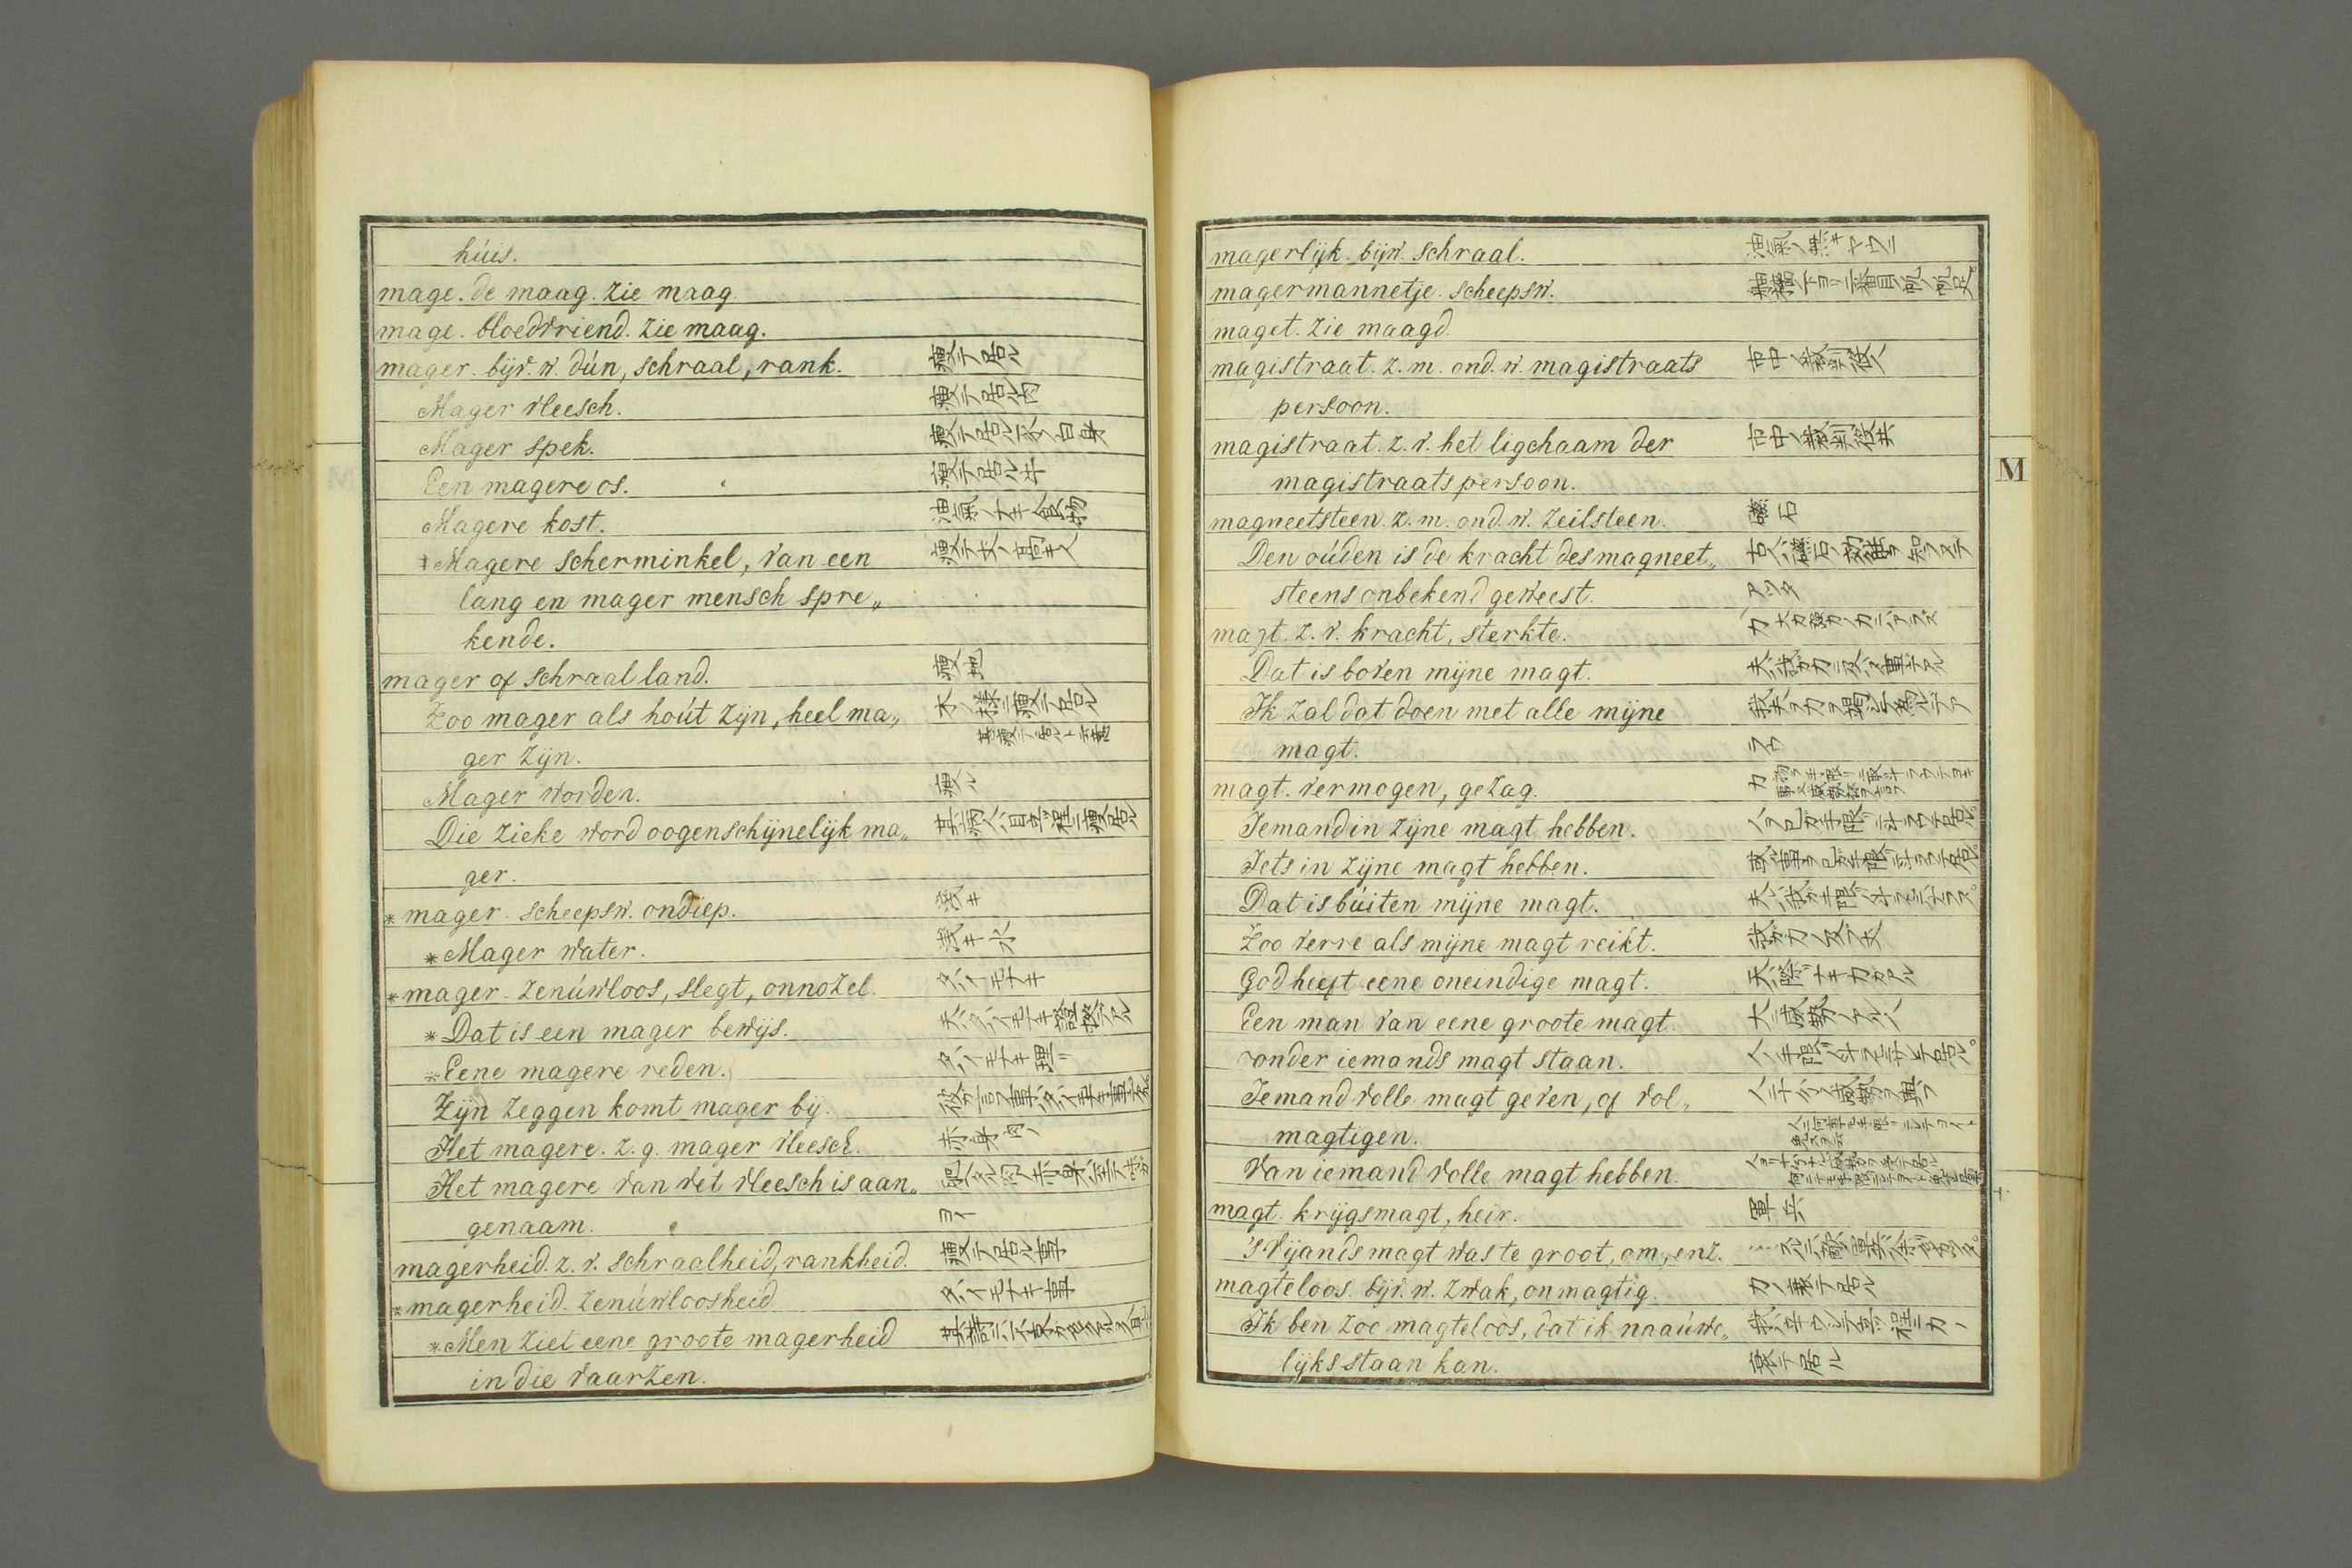 húis.
mage. de maag. zie maag.
mage. bloedvriend. zie maag.
mager. bijv. w. dún, schraal, rank. 瘦テ居ル
Mager vleesch. 瘦テ居ル肉
Mager spek. 瘦テ居ル豕ノ白身
Een magere os. 瘦テ居ル牛
Magere kost. 油氣ノナキ食物
‡Magere scherminkel, van een 瘦テ丈ノ高キ人
lang en mager mensch spre„
kende.
mager of schraal land. 瘦地
Zoo mager als hoút zijn, heel ma„ 木ノ様ニ瘦テ居ル
ger zijn. 甚瘦テ居ルト云意
Mager worden. 瘦ル
Die zieke word oogenschijnelijk ma„ 其病人ハ目立程ニ瘦居ル
ger.
* mager. scheepsw. ondiep. 浅キ
* Mager water. 浅キ水
* mager. zenúwloos, slegt, onnozel. タハイモナキ
* Dat is een mager bewijs. 夫ハタハイモナキ證據テアル
* Eene magere reden. タハイモナキ理リ
Zijn zeggen komt mager bij.
Het magere. z. g. mager vleesch. 赤身ノ肉
Het magere van vet vleesch is aan„
genaam. ヨイ
magerheid. z. v. schraalheid, rankheid. 瘦テ居ル事
* magerheid. zenúwloosheid. タハイモナキ事
* Men ziet eene groote magerheid
in die vaarzen.
magerlijk. bijw. schraal. 油氣ノ無キヤウニ
magermannetje. scheepsw.
maget. zie maagd.
magistraat. z. m. ond. w. magistraats 市中ノ裁判役人
persoon.
magistraat. z. v. het ligchaam der 市中ノ裁判役共
magistraatspersoon.
magneetsteen. z. m. ond. w. zeilsteen. 礠石
Den oúden is de kracht des magneet„ 古人ハ礠石ノ効能ヲ知ラズテ
steens onbekend geweest. アツタ
magt. z. v. kracht, sterkte.
Dat is boven mijne magt. 夫ハ我カ力ニ及ハヌ事テアル
Ik zal dat doen met alle mijne 我夫ヲ力ヲ竭シテ為ルデア
magt. ラウ
magt. vermogen, gezag.
Iemand in zijne magt hebben.
Iets in zijne magt hebben.
Dat is búiten mijne magt.
Zoo verre als mijne magt reikt. 我カ力ノ及フ丈
God heeft eene oneindige magt. 天ハ際リナキ力カアル
Een man van eene groote magt. 大ニ威勢ノアル人
onder iemands magt staan.
Iemand volle magt geven, of vol„ 人ニ十分ノ威勢ヲ與フ
magtigen.
Van iemand volle magt hebben.
magt. krijgsmagt, heir. 軍兵
's Vijands magt was te groot, om, enz.
magteloos. bijv. w. zwak, onmagtig. 力ノ衰テ居ル
Ik ben zoo magteloos, dat ik naaúwe„
lijks staan kan. 衰テ居ル
M